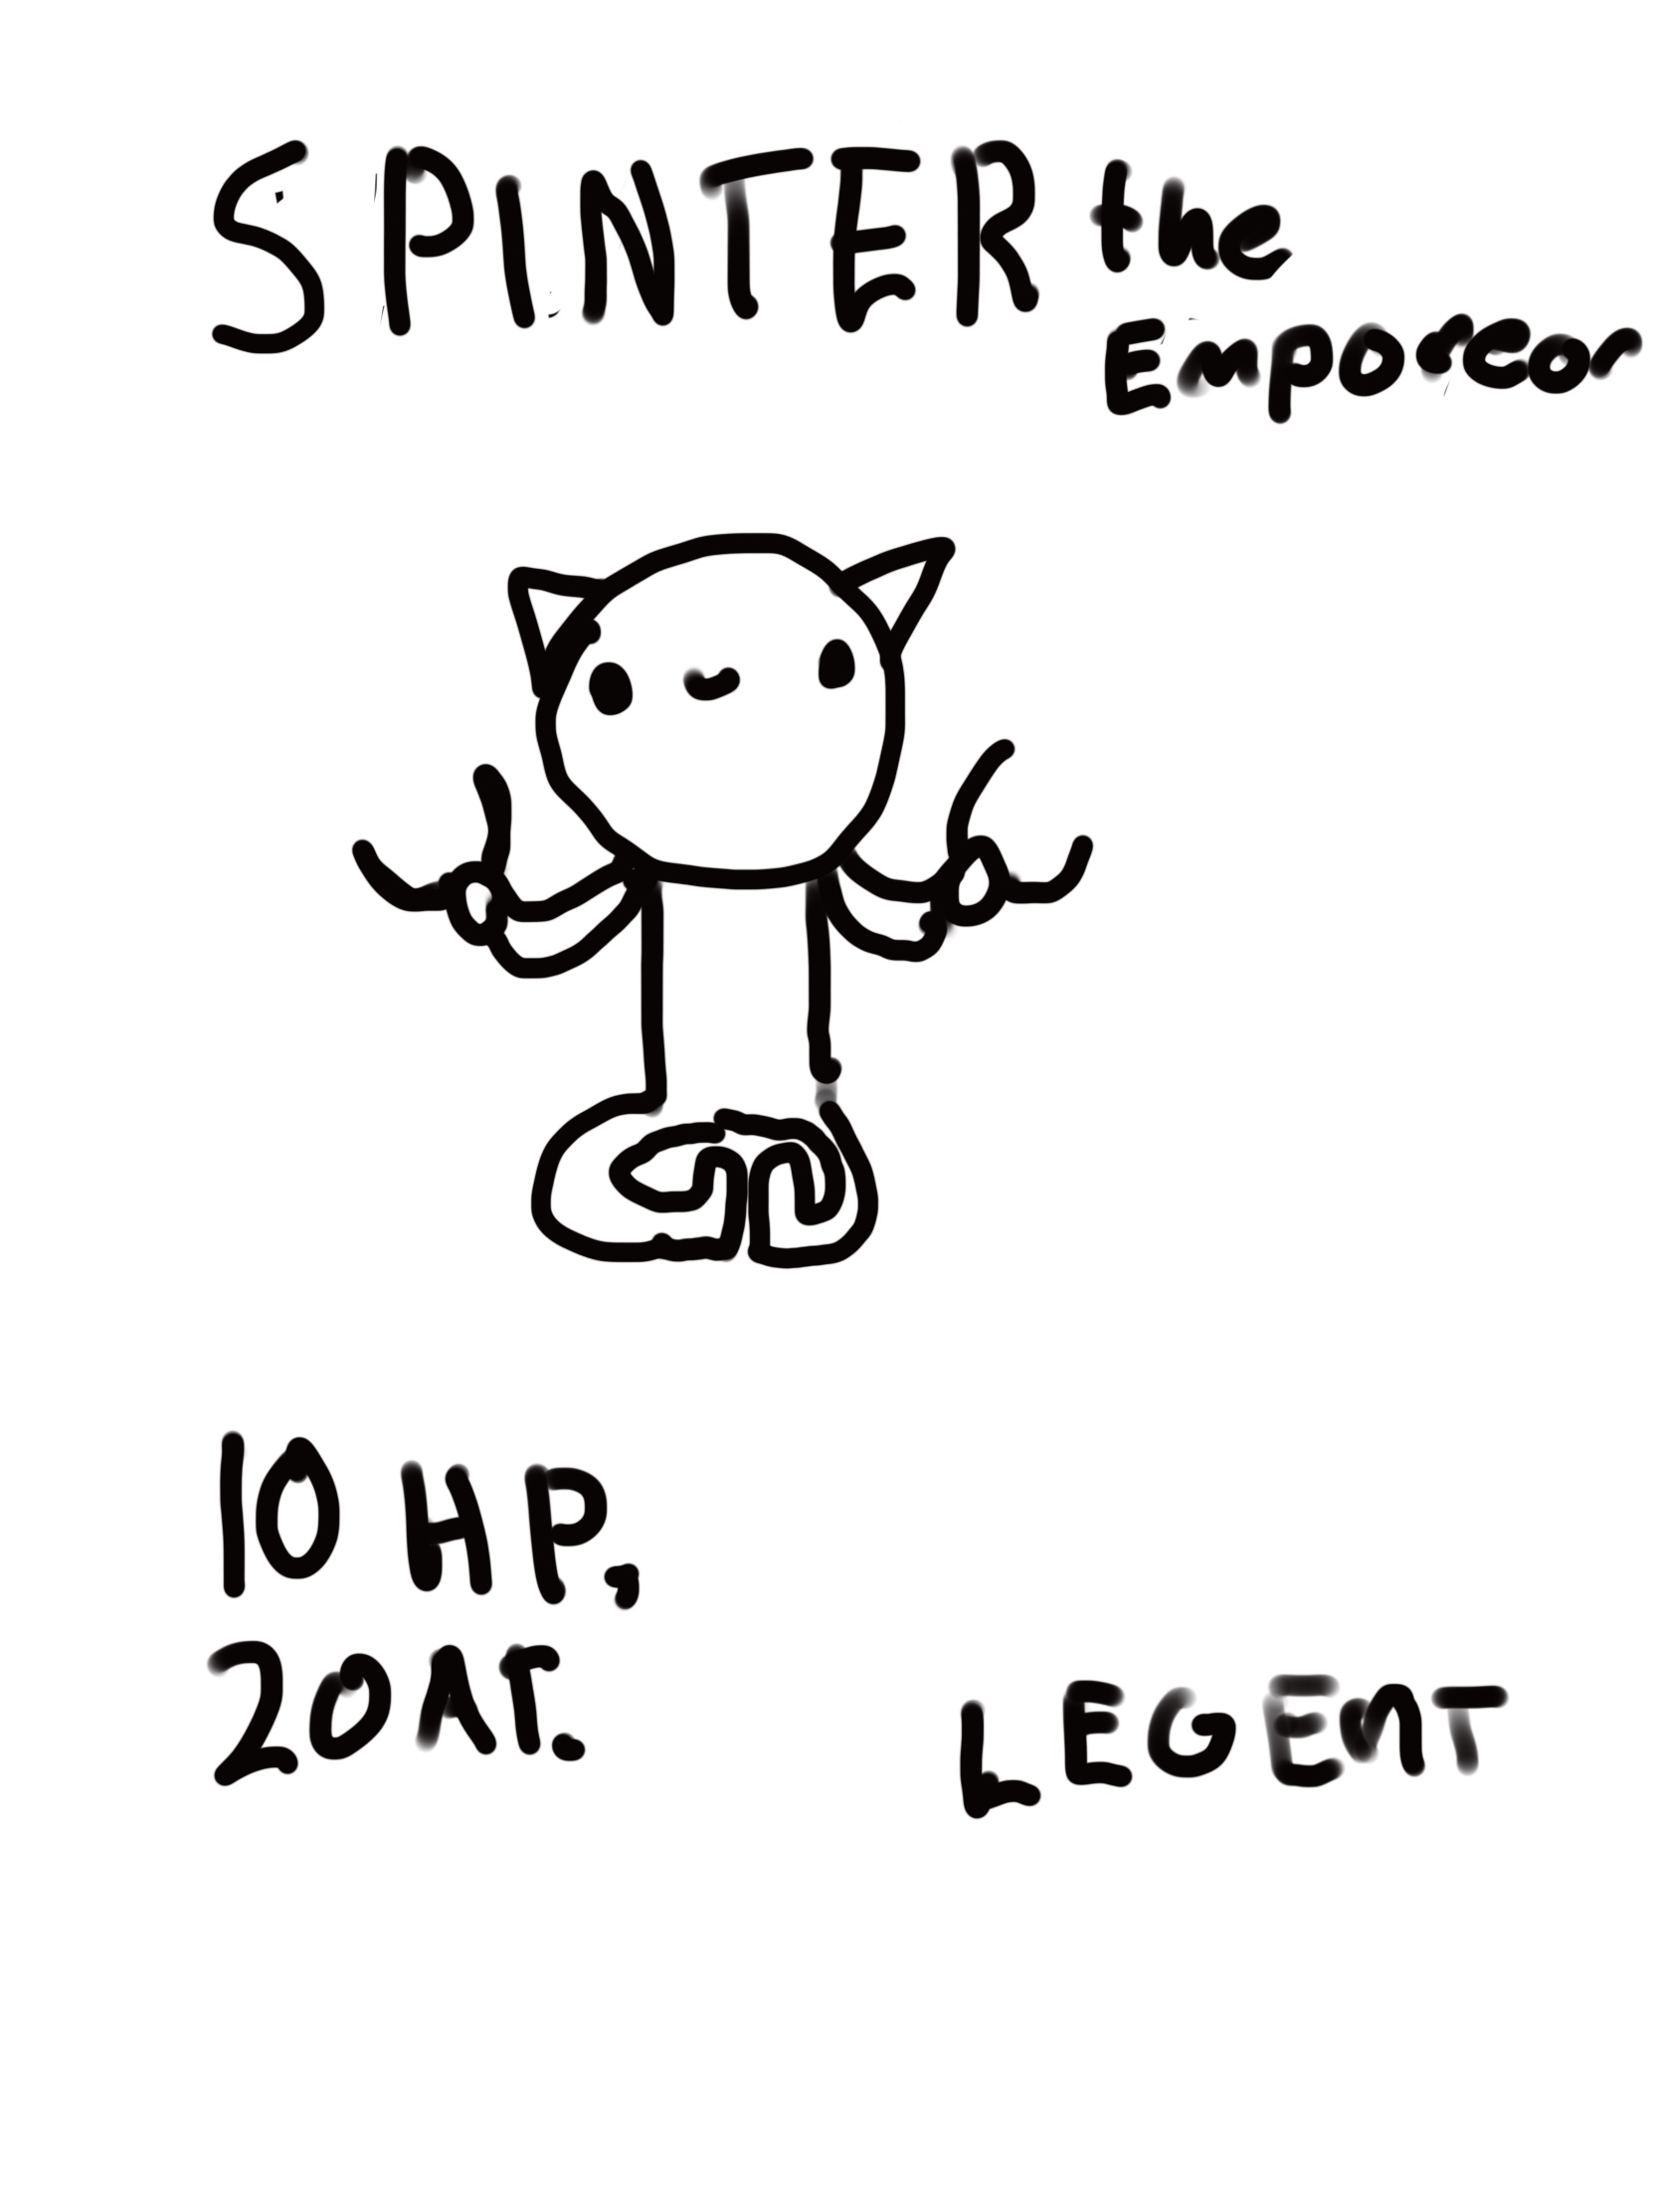 SPINTER the
Emporeor
10 HP,
20 AT.
LEGENT